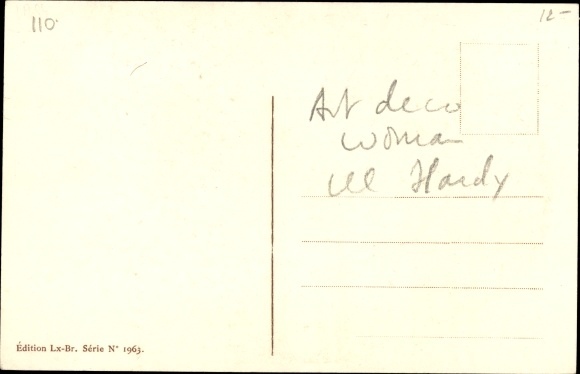 110.
12-
Art deco
woman
ill Hardy
Édition Lx-Br. Série N° 1963.